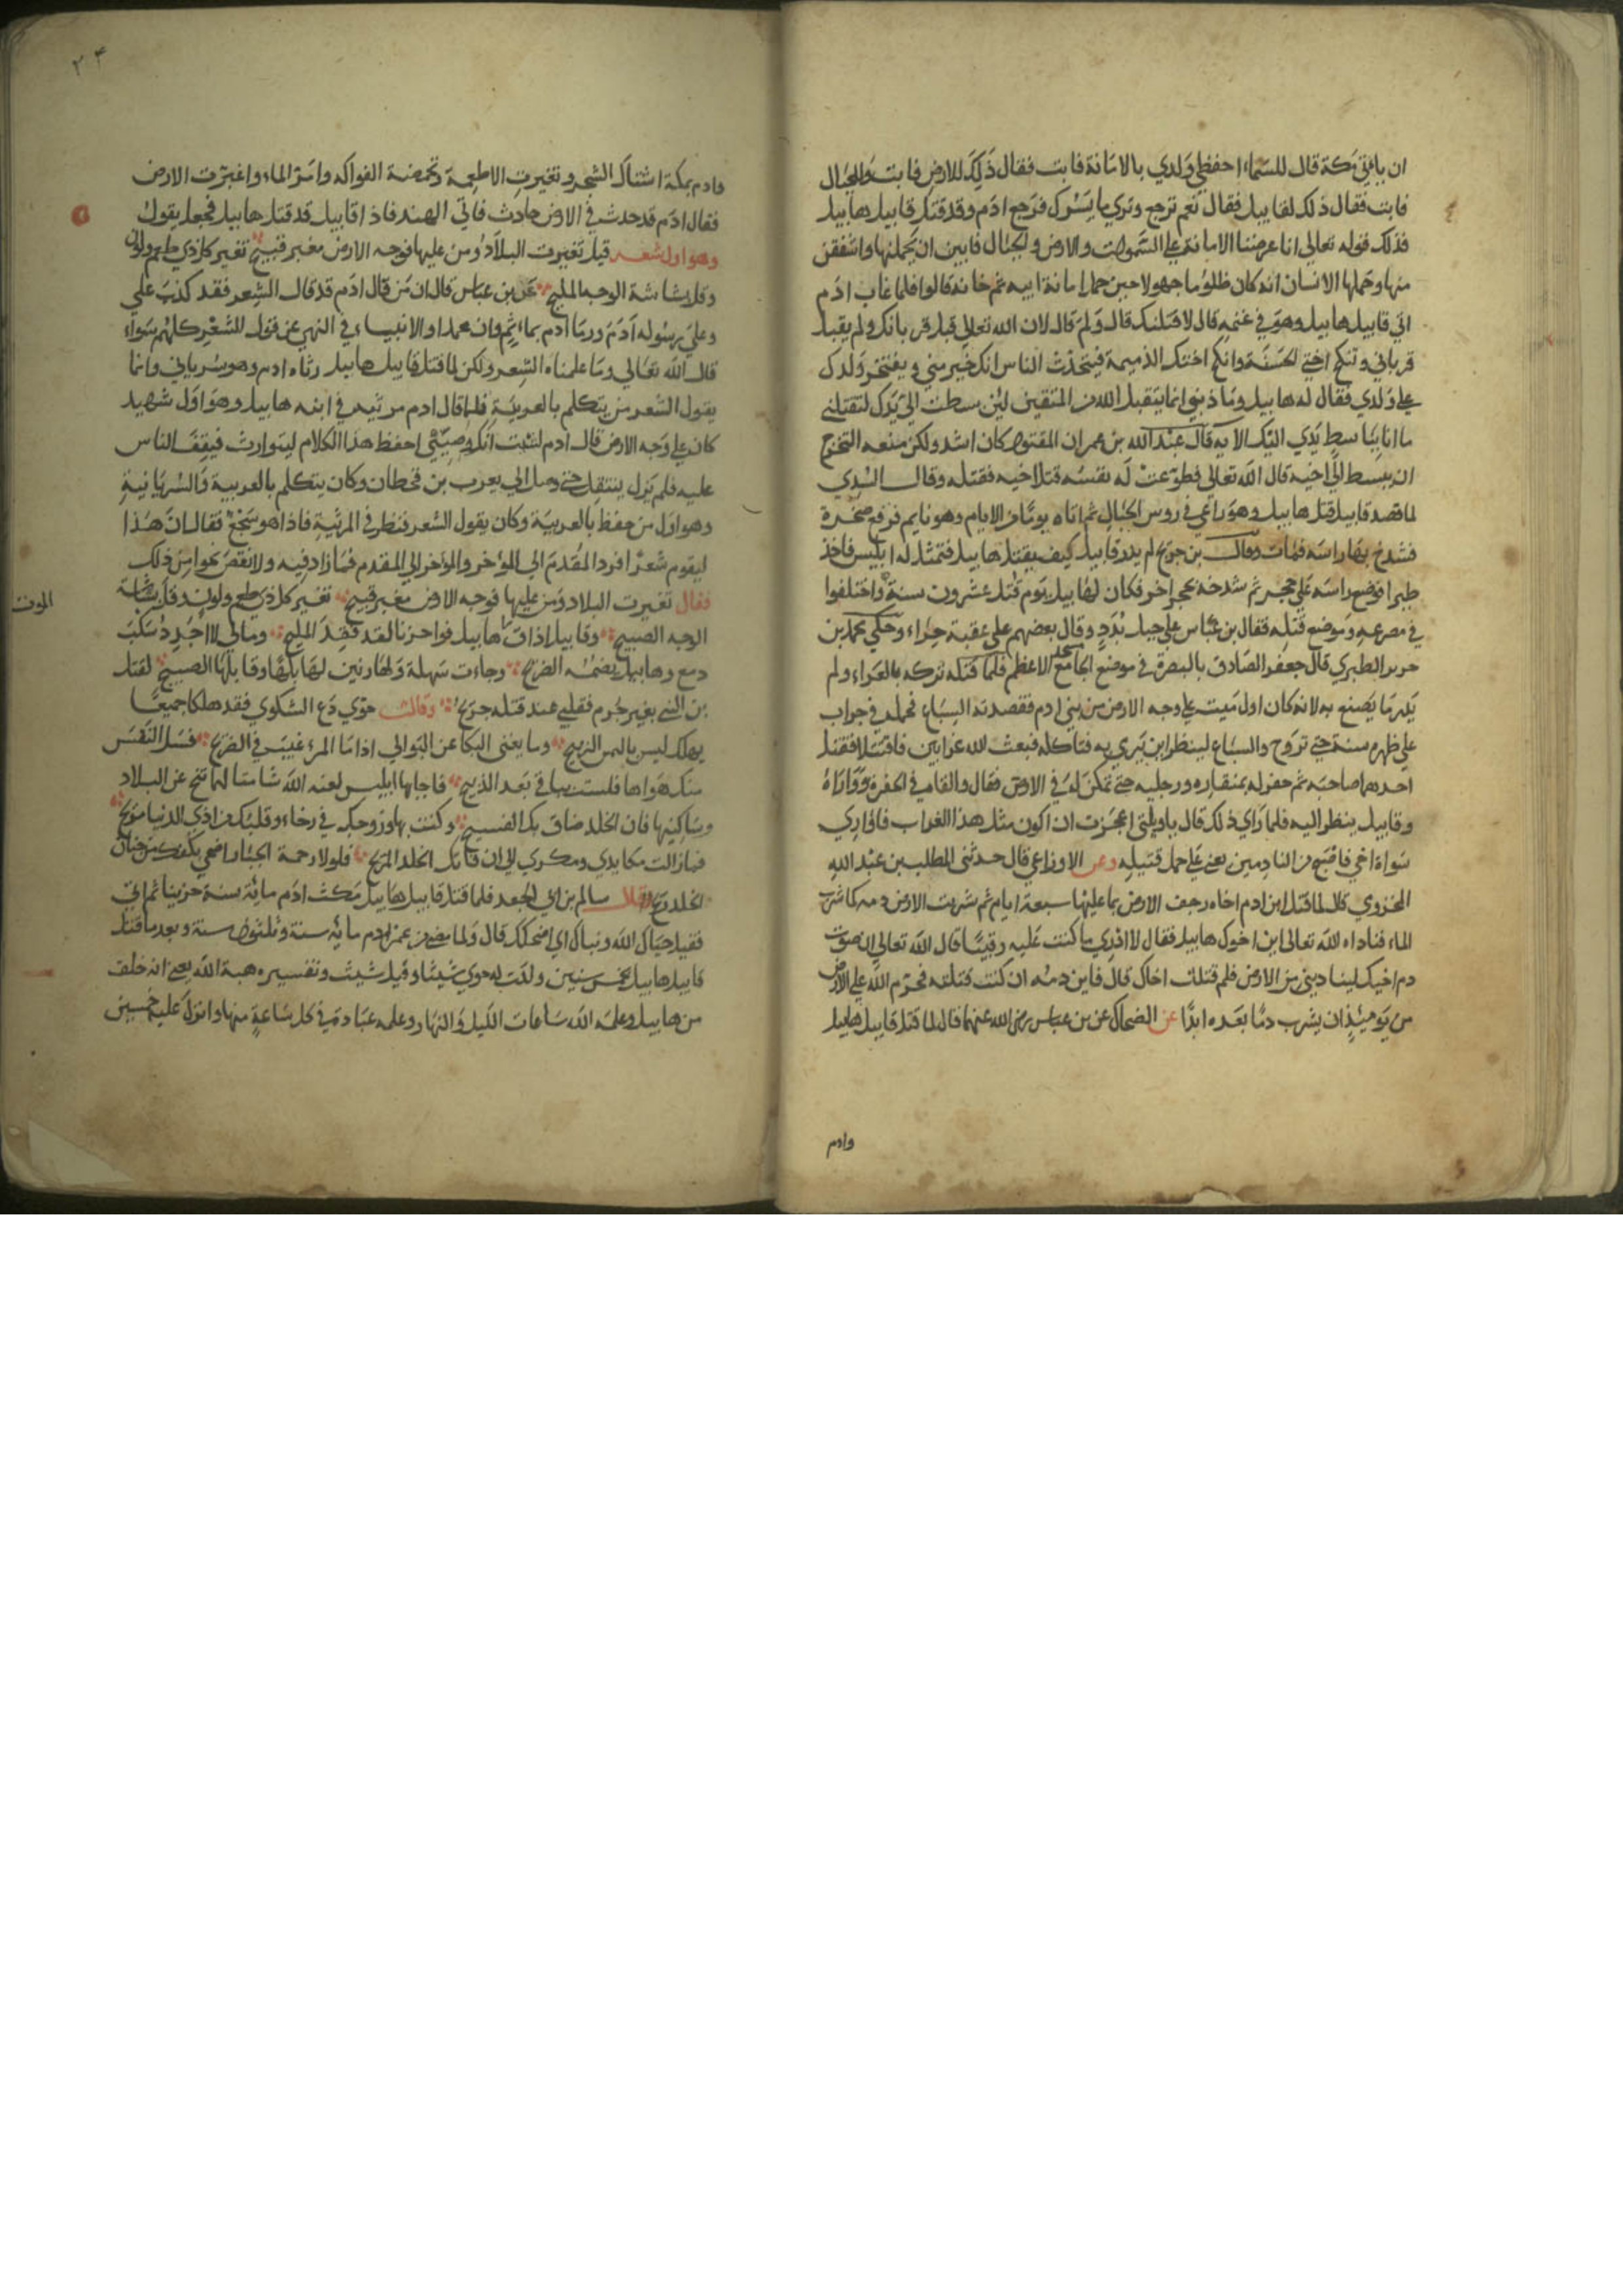 ان ياتي مكة قال للسماء احفظي ولدي بالامانة فابت فقال ذلك للارض فابت والجبال
فابت فقال ذلك لقابيل فقال نعم ترجع وتري ما يسرك فرجع ادم وقد قتل قابيل هابيل
فذلك قوله تعالي انا عرضنا الامانة علي السموات والارض والجبال فابين ان يحملنها واشفقن
منها وحملها الانسان انه كان ظلوما جهولا حين حمل امانة ابيه ثم خانه قالوا فلما غاب ادم
اتي قابيل هابيل وهو في غنمه قال لاقتلنك قال ولم قال لان الله تعالي قبل قربانك ولم يقبل
قرباني وتنكح اختي الحسنة وانكح اختك الذميمة فيتحدث الناس انك خير مني ويفتخر ولدك
علي ولدي فقال له هابيل وما ذنبي انما يتقبل الله من المتقين لئن بسطت الي يدك لتقتلني
ما انا بباسط يدي اليك الايه قال عبد الله بن عمر ان المقتول كان اشد ولكن منعه التحرج
ان يبسط الي اخيه قال الله تعالي فطوعت له نفسه قتل اخيه فقتله وقال السدي
لما قصد قابيل قتل هابيل وهو راعي في روس الجبال ثم اتاه يوما من الايام وهو نايم فرفع صخرة
فشدخ بها راسه فمات وقال بن جريج لم يدر قابيل كيف يقتل هابيل فتمثل له ابليس فاخذ
طيرا فوضع راسه علي حجر ثم شدخه بحجر اخر فكان لهابيل يوم قتل عشرون سنة واختلفوا
في مصرعه وموضع قتله فقال بن عباس علي جبل نود وقال بعضهم علي عقبة حراء وحكي محمد بن
جرير الطبري قال جعفر الصادق بالبصرة في موضع الجامع الاعظم فلما قتله تركه بالعراء ولم
يدر ما يصنع به لانه كان اول ميت علي وجه الارض من بني ادم فقصدته السباع فحمله في جراب
علي ظهره سنة حتي تروح والسباع لينظر اين يرمي به فتاكله فبعث الله غرابين فاقتتلا فقتل
احدهما صاحبه ثم حفر له بمنقاره ورجليه حتي تمكن له في الارض فقال والقاه في الحفرة وواراه
وقابيل ينظر اليه فلما راي ذلك قال ياويلتي اعجزت ان اكون مثل هذا الغراب فاواري
سواة اخي فاصبح من النادمين يعني علي حمل قتيله وعن الاوزاعي قال حدثني المطلب بن عبد الله
المخزومي قال لما قتل ابن ادم اخاه رجف الارض بما عليها سبعة ايام ثم شربت الارض دمه كما شرب
الماء فناداه الله تعالي اين اخوك هابيل فقال لا ادري ما كنت عليه رقيبا قال الله تعالي ان صوت
دم اخيك ليناديني من الارض فلم قتلت اخاك قال فاين دمه ان كنت قتلته فحرم الله علي الارض
من يومئذ ان يشرب دما بعده ابدا عن الضحاك عن بن عباس رضي الله عنهما قال لما قتل قابيل هابيل
وادم
٢٤
وادم بمكة اشتاك الشجر وتغيرت الاطعمة وتحمضة الفواكه وامر الماء واغبرت الارض
فقال ادم قد حدث في الارض حادث فاتي الهند فاذا قابيل قد قتل هابيل فجعل يقول
وهو اول شعر قيل تغيرت البلاد ومن عليها فوجه الارض مغبر قبيح تغير كل ذي طعم ولون
وقل بشاشة الوجه المليح عن بن عباس قال ان من قال ادم قد قال الشعر فقد كذب علي
وعلي رسوله ادم ورما ادم بماثم وان محمدا والانبياء في النهي عن قول الشعر كلهم سواء
قال الله تعالي وما علمناه الشعر ولكن لما قتل قابيل هابيل رثاه ادم وهو سرياني وانما
يقول الشعر من يتكلم بالعربية فلما قال ادم مرثيه في ابنه هابيل وهو اول شهيد
كان علي وجه الارض قال ادم لشيث انك وصيتي احفظ هذا الكلام ليتوارث فيقف الناس
عليه فلم يزل ينتقل حتي وصل الي يعرب بن قحطان وكان يتكلم بالعربية والسريانية
وهو اول من حفظ بالعربية وكان يقول الشعر فنظر في المرثية فاذا هو سجع فقال ان هذا
ليقوم شعرا فرد المقدم الي المؤخر والمؤخر الي المقدم فما زاد فيه ولا نقص نحوا من ذلك
فقال تغيرت البلاد ومن عليها فوجه الارض مغبر قبيح تغير كل ذي طعم ولون وقل بشاشة
الموت
الوجه الصبيح وقابيل اذاق هابيل فواحزنا لقد فقد المليح ومالي لا اجد بسكب
دمع وهابيل يضمه الضريح وجاءت سهلة ولها رنين لهابلها وقابلها الصبيح لقتل
بن النبي بغير جرم فقلبي عند قتله جريح وقالت حوي دع الشكوي فقد هلكا جميعا
بهلك ليس بالثمن الربيح وما يغني البكا عن البوالي اذا ما المرء غيب في الضريح فسل النفس
منك هواها فلست بباقي بعد الذبيح فاجابها ابليس لعنه الله شامتا لهما تنح عن البلاد
وساكنيها فان الخلد ضاق بك الفسيح وكنت بها وزوجك في رخاء وقلبك من اذي الدنيا مريح
فما زالت مكايدي ومكري الي ان فاتك الخلد المريح فلولا رحمة الجبار اضحي بكفك من جنان
الخلد ريح وقال سالم بن ابي الجعد فلما قتل قابيل هابيل مكث ادم مائة سنة حزينا ثم اتي
فقيل حياك الله وبياك اي اضحكك قال ولما مضي من عمر ادم مائة سنة وثلثون سنة وبعد ما قتل
قابيل هابيل بخمس سنين ولدت له حوي شيثا وقيل شيث وتفسيره هبة الله يعني انه خلف
من هابيل وعلمه الله ساعات الليل والنهار وعلمه عبادة في كل ساعة منها وانزل عليه خمسين